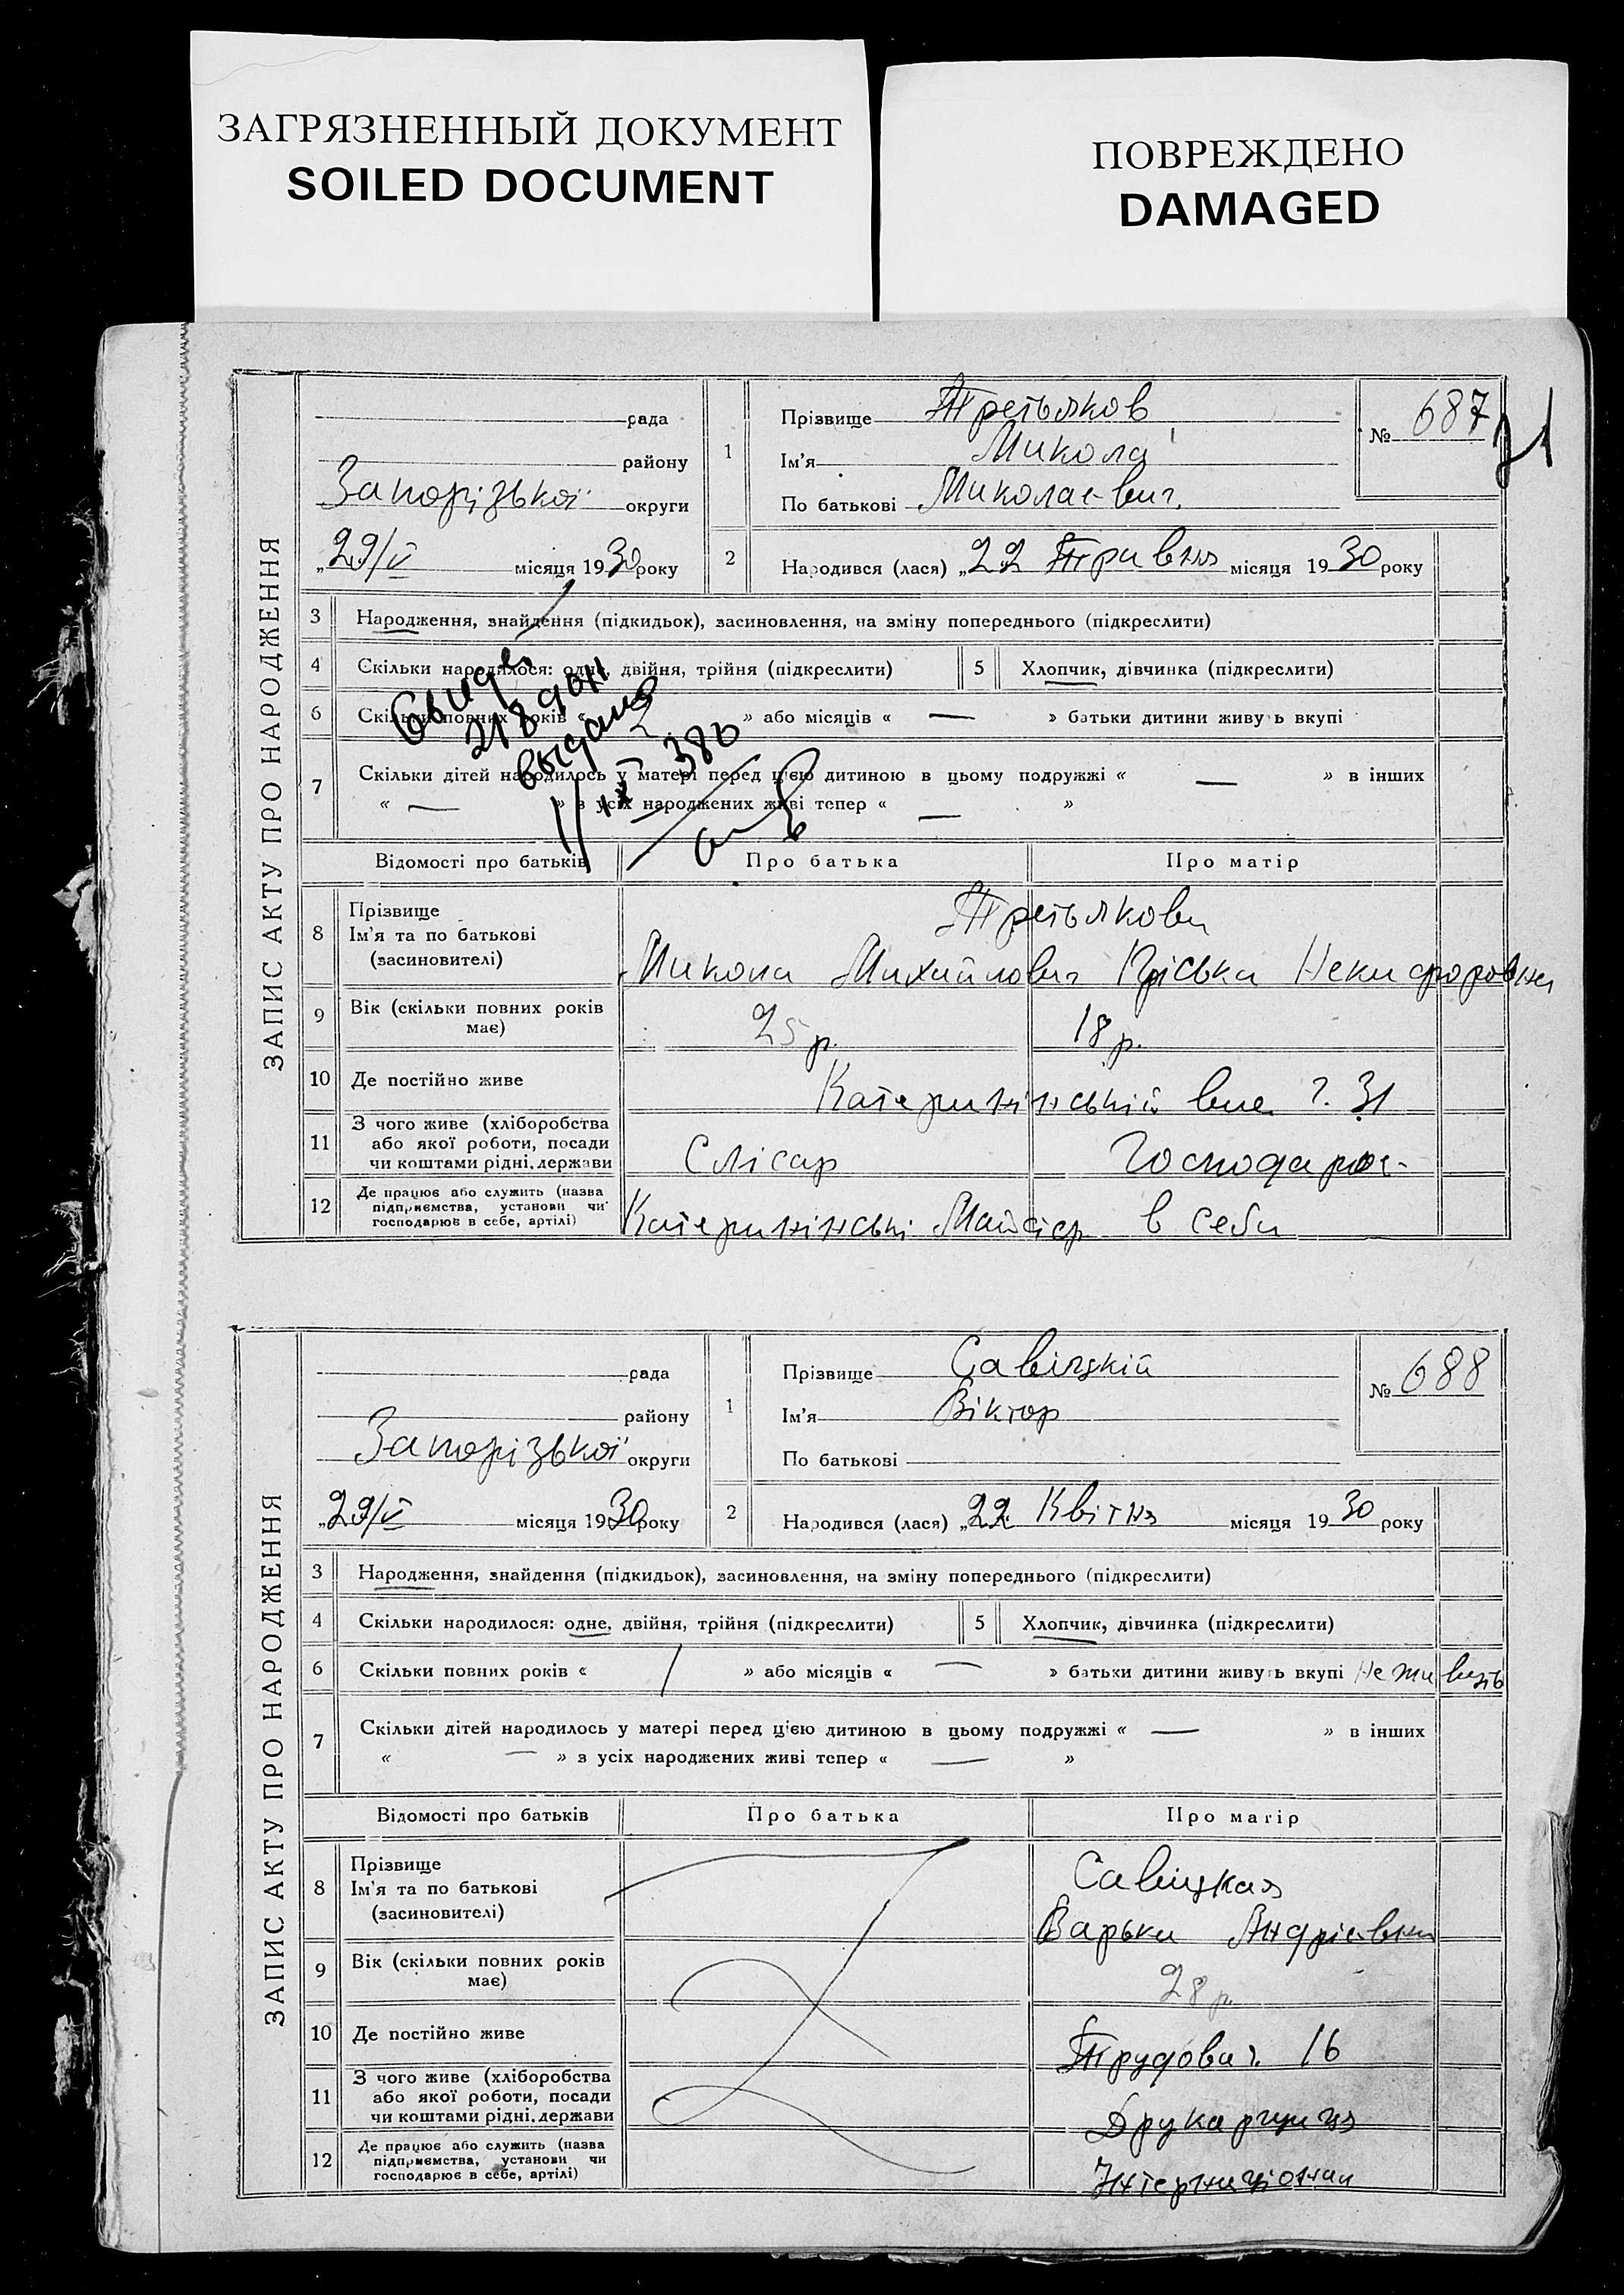 ЗАГРЯЗНЕННЫЙ ДОКУМЕНТ
SOILED DOCUMENT
ПОВРЕЖДЕНО
DAMAGED
71
ЗАПИС АКТУ ПРО НАРОДЖЕННЯ
рада
району
Запорізької округи
„29/V місяця 1930 року
1
Прізвище Третьяков
Ім'я Микола
По батькові Миколаєвич.
№ 687
2
Народився (лася) „22 Травня місяця 1930 року
3 Народження, знайдення (підкидьок), засиновлення, на зміну попереднього (підкреслити)
4 Скільки народилося: одне, двійня, трійня (підкреслити) 5 Хлопчик, дівчинка (підкреслити)
6 Скільки повних років « 2 » або місяців « — » батьки дитини живуть вкупі
7 Скільки дітей народилось у матері перед цією дитиною в цьому подружжі « — » в інших
« — » з усіх народжених живі тепер « — »
выдано
Відомості про батьків Про батька Про матір
8 Прізвище
Ім'я та по батькові
(засиновителі)
Третьякови
Микола Михайлович Пріська Некифоровна
9 Вік (скільки повних років має) 25 р. 18 р.
10 Де постійно живе Катерининській вул. 31
11 З чого живе (хліборобства
або якої роботи, посади
чи коштами рідні, держави
Слісар Господарює
12 Де працює або служить (назва
підприємства, установи чи
господарює в себе, артілі)
Катерининські Майстер. в себе
ЗАПИС АКТУ ПРО НАРОДЖЕННЯ
рада
району
Запорізької округи
„29/V місяця 1930 року
1
Прізвище Савіцкій
Ім'я Віктор
По батькові
№ 688
2
Народився (лася) „22 Квітня місяця 1930 року
3 Народження, знайдення (підкидьок), засиновлення, на зміну попереднього (підкреслити)
4 Скільки народилося: одне, двійня, трійня (підкреслити) 5 Хлопчик, дівчинка (підкреслити)
6 Скільки повних років « / » або місяців « — » батьки дитини живуть вкупі Не живуть
7 Скільки дітей народилось у матері перед цією дитиною в цьому подружжі « — » в інших
« — » з усіх народжених живі тепер « — »
Відомості про батьків Про батька Про матір
8 Прізвище
Ім'я та по батькові
(засиновителі)
Савіцкая
Варька Андрієвна
9 Вік (скільки повних років має) 28 р.
10 Де постійно живе Трудова 16
11 З чого живе (хліборобства
або якої роботи, посади
чи коштами рідні, держави
Друкарщиця
12 Де працює або служить (назва
підприємства, установи чи
господарює в себе, артілі)
Интернаціонал